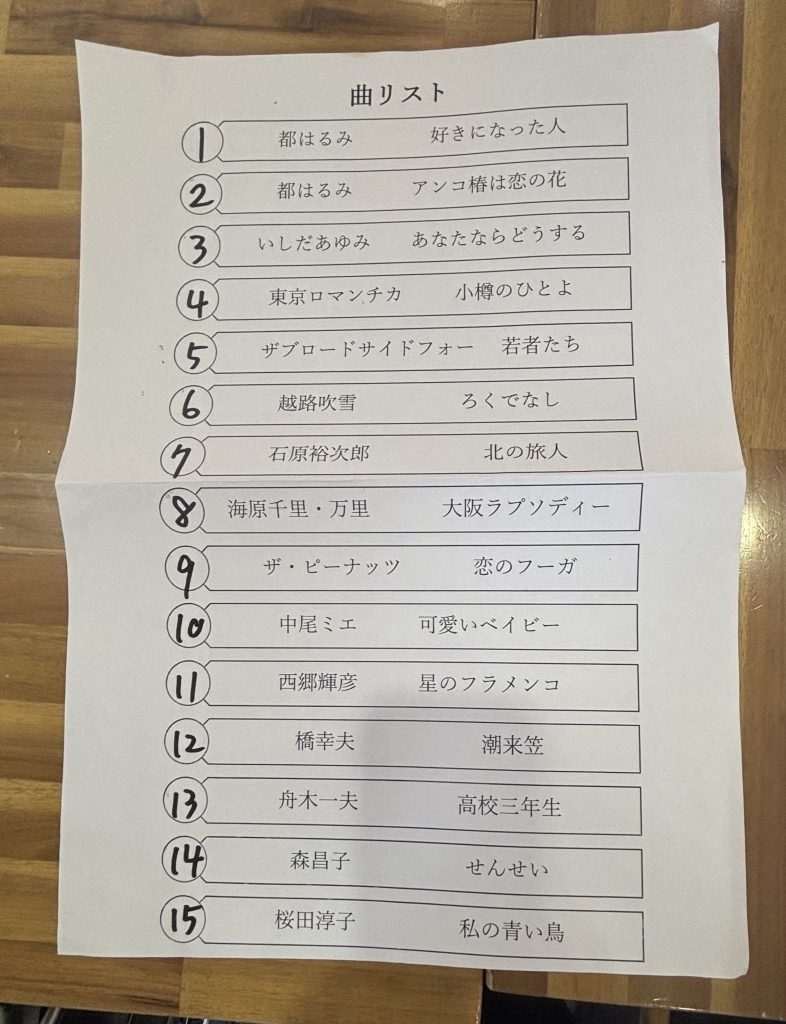 曲リスト
1 都はるみ 好きになった人
2 都はるみ アンコ椿は恋の花
3 いしだあゆみ あなたならどうする
4 東京ロマンチカ 小樽のひとよ
5 ザブロードサイドフォー 若者たち
6 越路吹雪 ろくでなし
7 石原裕次郎 北の旅人
8 海原千里・万里 大阪ラプソディー
9 ザ・ピーナッツ 恋のフーガ
10 中尾ミエ 可愛いベイビー
11 西郷輝彦 星のフラメンコ
12 橋幸夫 潮来笠
13 舟木一夫 高校三年生
14 森昌子 せんせい
15 桜田淳子 私の青い鳥